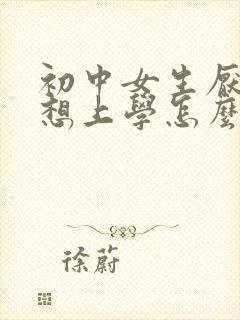 初中女生厭
想上學怎麼
徐蔚